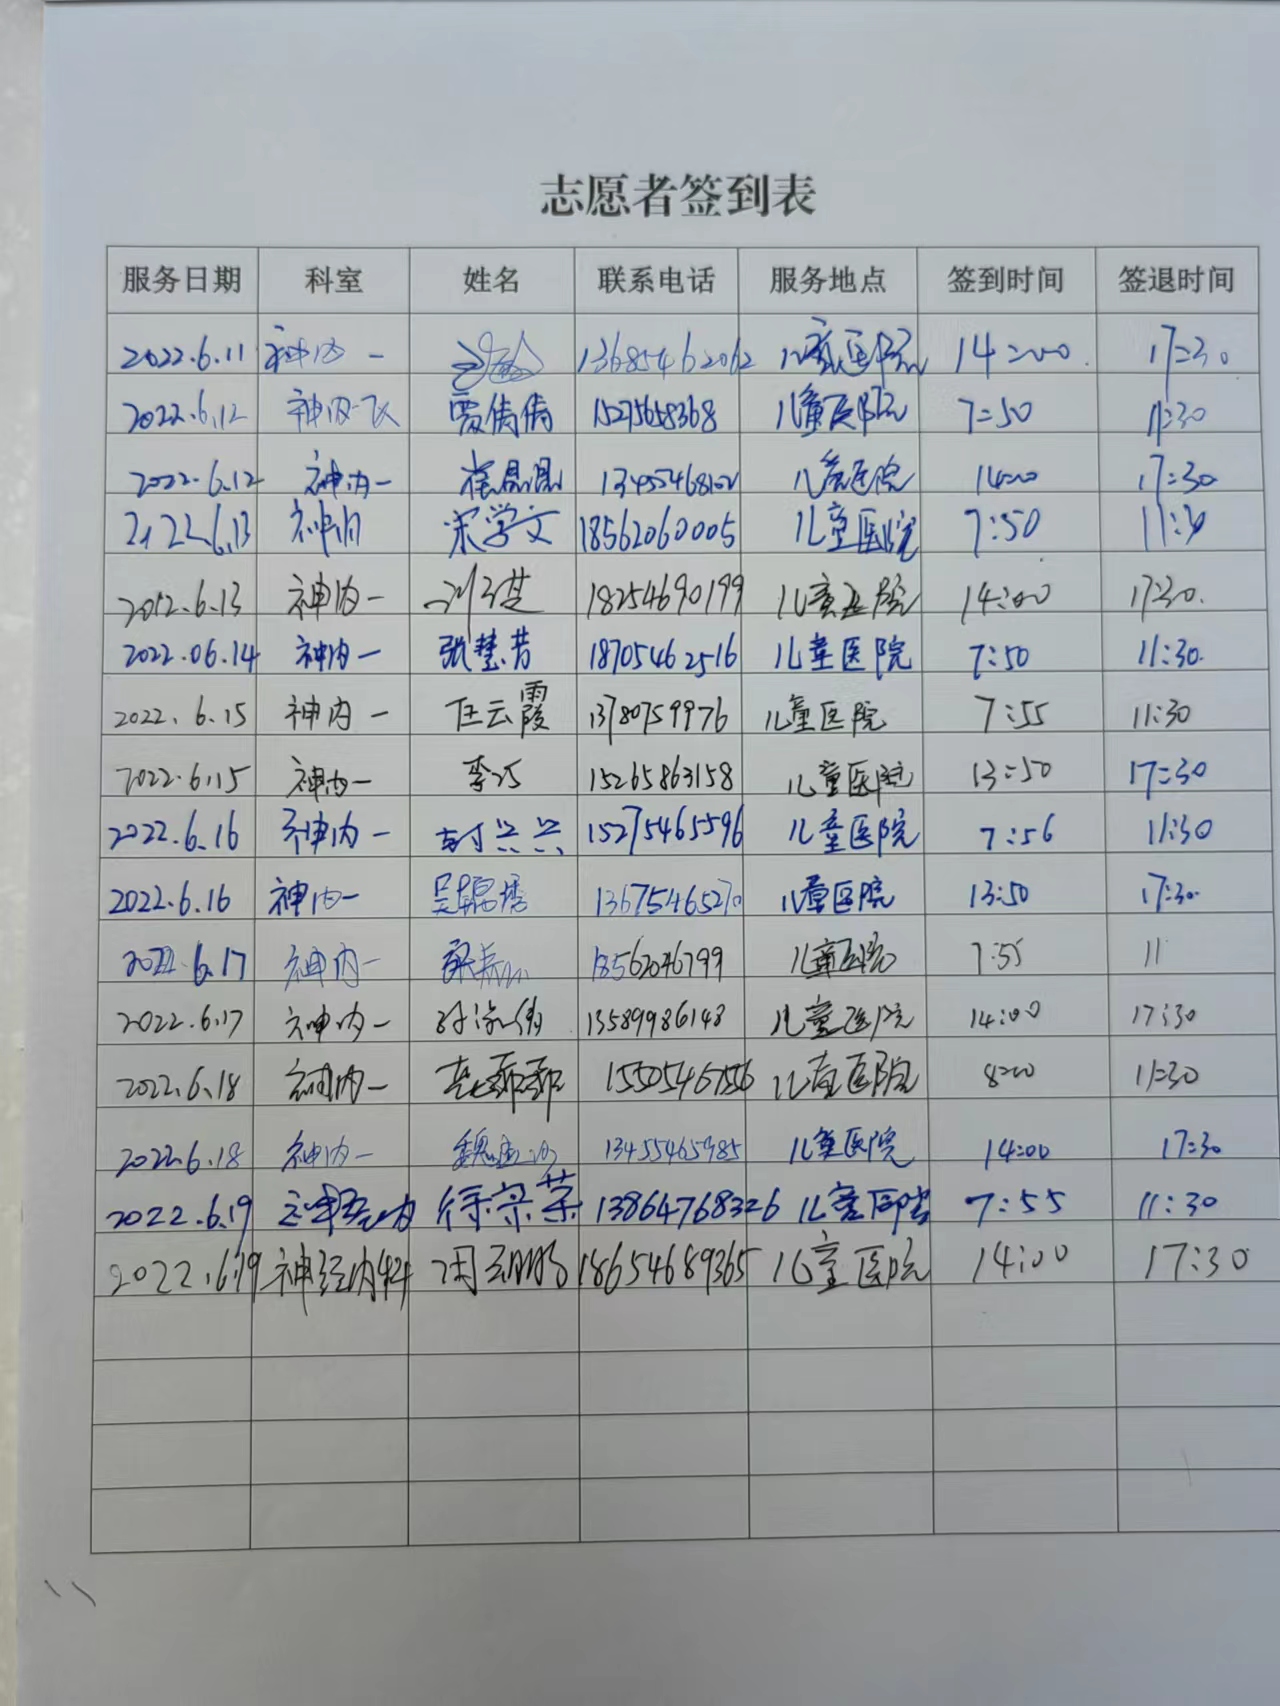 志愿者签到表
服务日期 科室 姓名 联系电话 服务地点 签到时间 签退时间
2022.6.11 神内一 13685462062 儿童医院 14:00 17:30
2022.6.12 神内一 贾倩倩 1527568368 儿童医院 7:50 11:30
2022.6.12 神内一 崔晶晶 儿童医院 14:00 17:30
2022.6.13 神内 宋学文 18562060005 儿童医院 7:50 11:30
2012.6.13 神内一 18254690199 儿童医院 14:00 17:30.
2022.06.14 神内一 张慧芳 18705462516 儿童医院 7:50 11:30.
2022.6.15 神内一 任云霞 13780759976 儿童医院 7:55 11:30
2022.6.15 神内一 李巧 15265863158 儿童医院 13:50 17:30
2022.6.16 神内一 封兴兴 15275465596 儿童医院 7:56 11:30
2022.6.16 神内一 13675465270 儿童医院 13:50 17:30.
2022.6.17 神内一 18562046799 儿童医院 7:55 11
2022.6.17 神内一 13589986148 儿童医院 14:00 17:30
2022.6.18 神内一 儿童医院 8:00 11:30
2022.6.18 神内一 13455465985 儿童医院 14:00 17:30
2022.6.19 神经内 徐宗荣 13864768326 儿童 7:55 11:30
2022.6.19 神经内科 18654689365 儿童医院 14:00 17:30